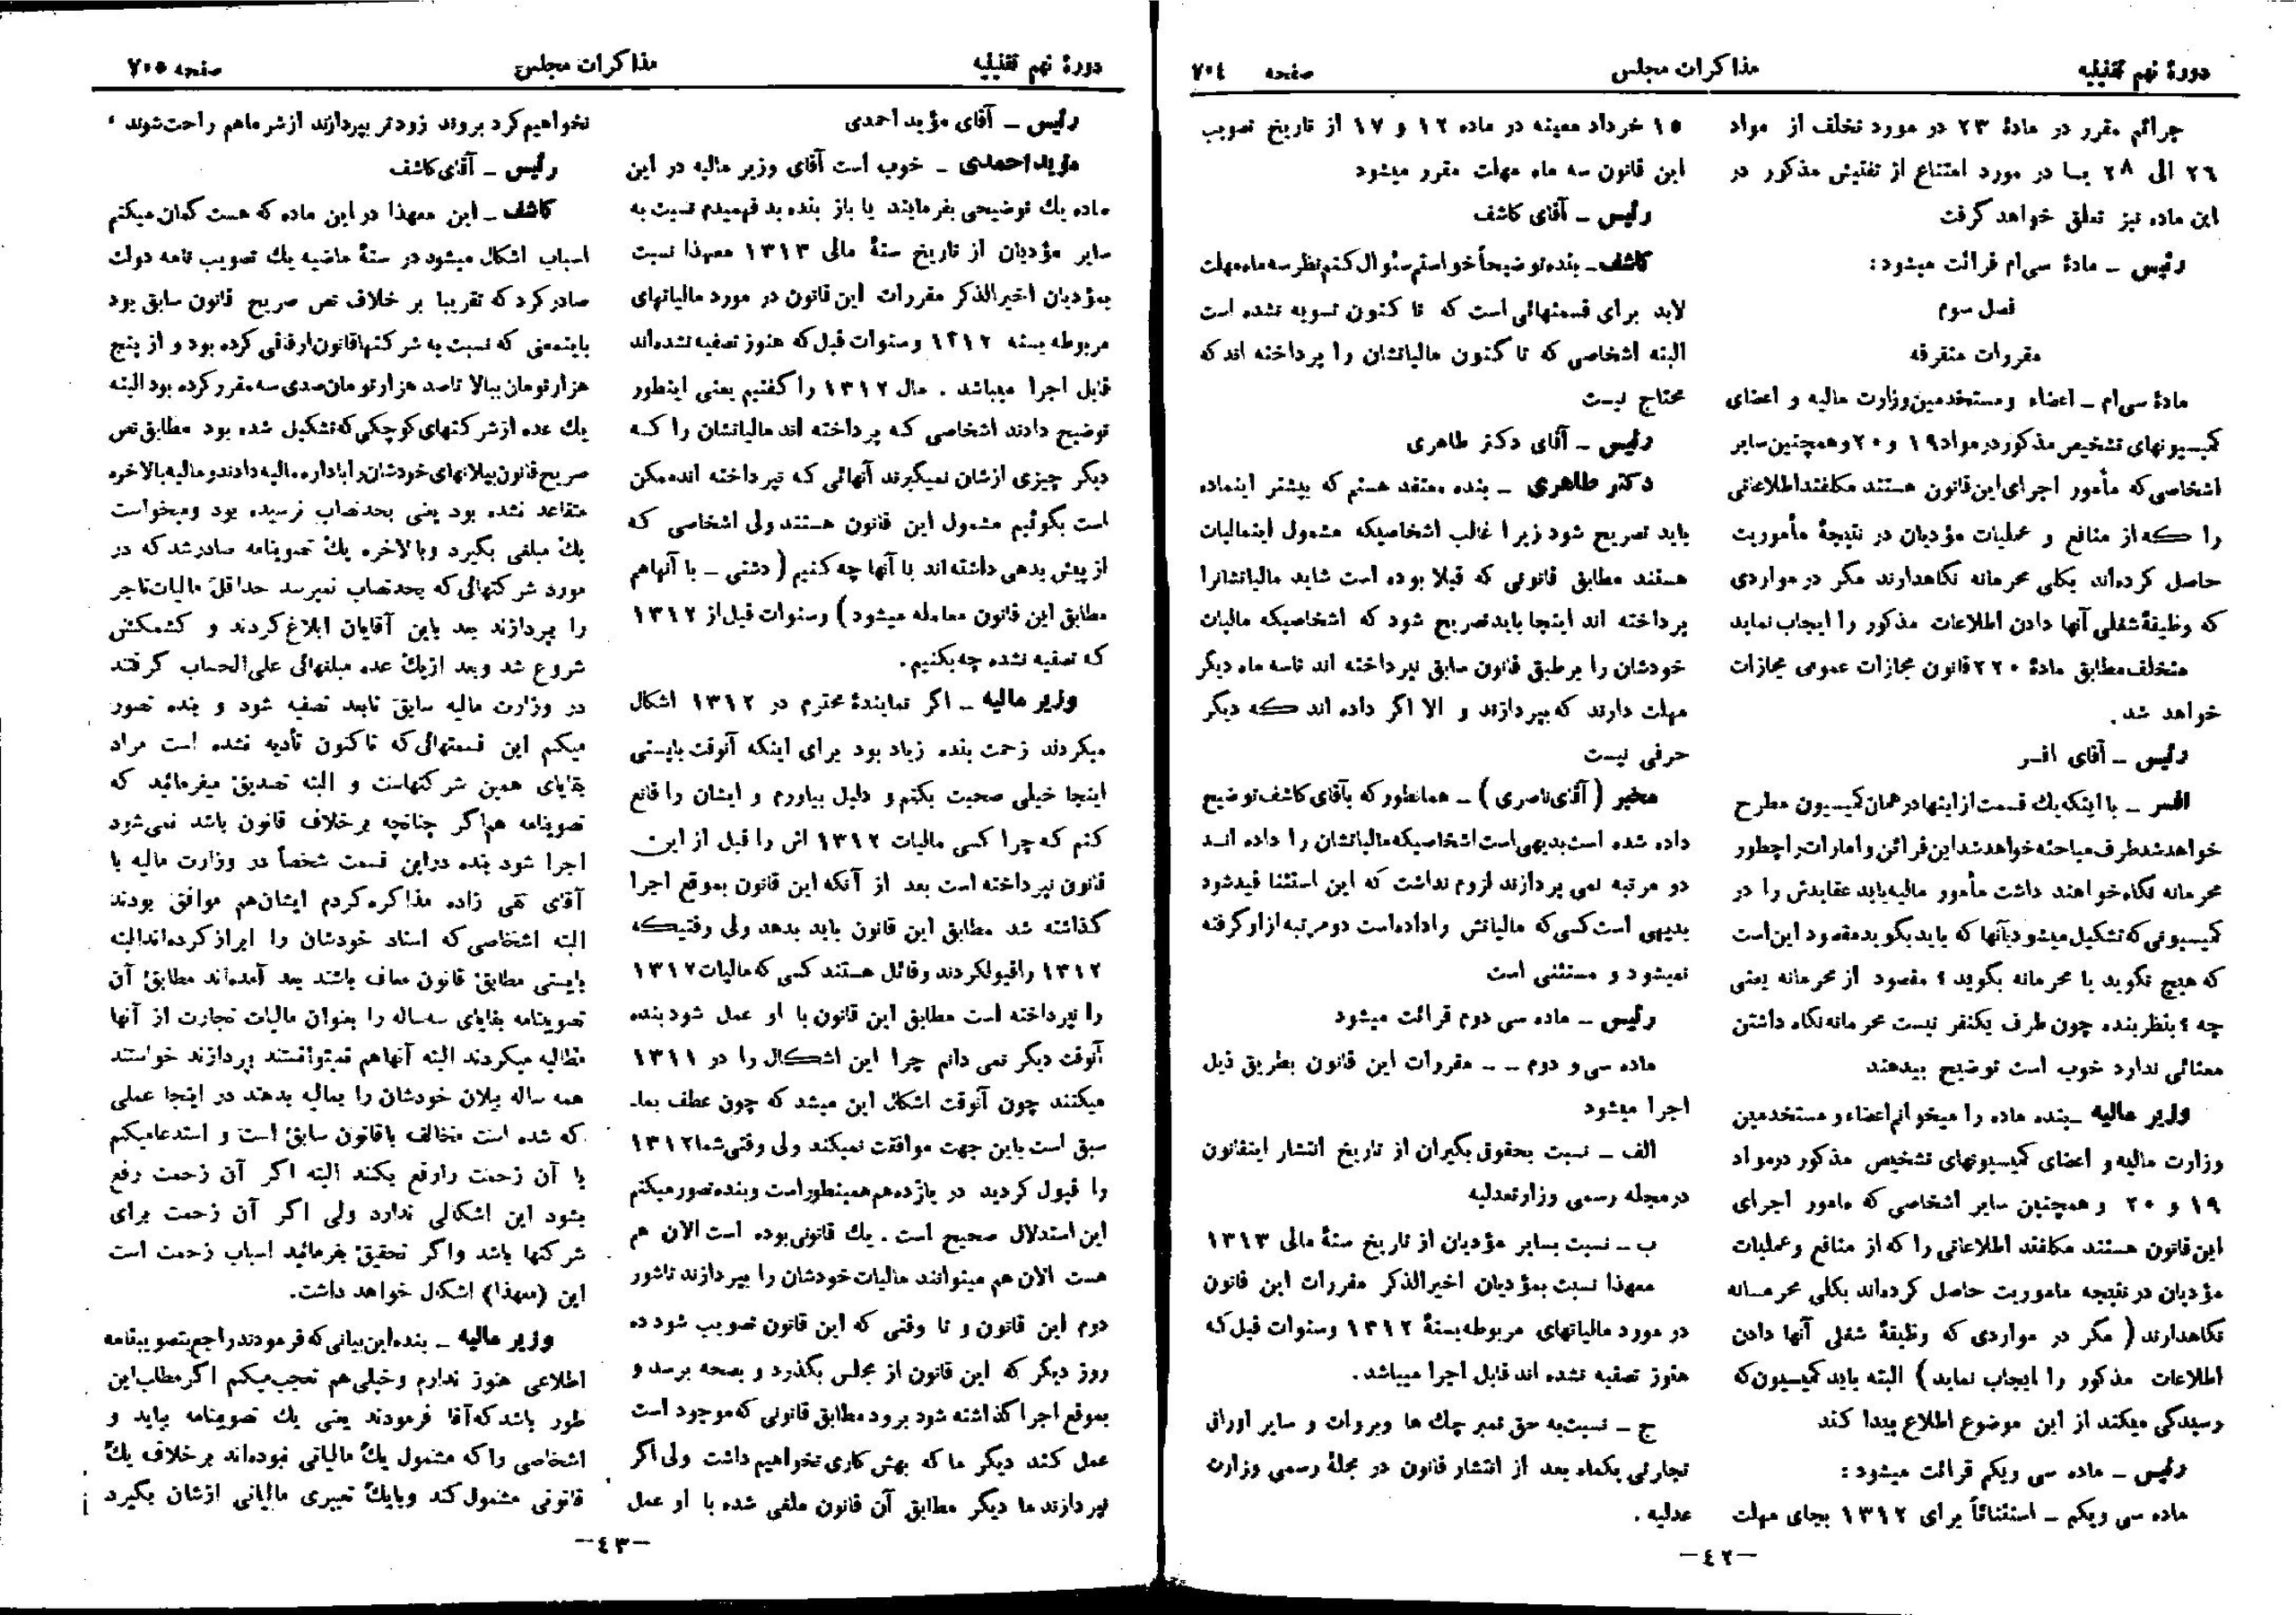 دورهٔ نهم تقنینیه
مذاکرات مجلس
صفحه ۷۰٤
جرائم مقرر در مادهٔ ۲۳ در مورد تخلف از مواد
۲٦ الی ۲۸ یا در مورد امتناع از تفتیش مذکور در
این ماده نیز تعلق خواهد گرفت
رئیس ـ مادهٔ سی‌ام قرائت میشود:
فصل سوم
مقررات متفرقه
مادهٔ سی‌ام ـ اعضاء و مستخدمین وزارت مالیه و اعضای
کمیسیونهای تشخیص مذکور در مواد ۱۹ و ۲۰ و همچنین سایر
اشخاصی که مأمور اجرای این قانون هستند مکلفند اطلاعاتی
را که از منافع و عملیات مؤدیان در نتیجهٔ مأموریت
حاصل کرده‌اند بکلی محرمانه نگاهدارند مگر در مواردی
که وظیفهٔ شغلی آنها دادن اطلاعات مذکور را ایجاب نماید
متخلف مطابق مادهٔ ۲۲۰ قانون مجازات عمومی مجازات
خواهد شد.
رئیس ـ آقای افسر
افسر ـ با اینکه یك قسمت از اینها در همان کمیسیون مطرح
خواهد شد طرف مباحثه خواهد شد این قرائن و امارات را چطور
محرمانه نگاه خواهند داشت مأمور مالیه باید عقایدش را در
کمیسیونی که تشکیل میشود بآنها که باید بگوید مقصود این است
که هیچ نگوید یا محرمانه بگوید ؟ مقصود از محرمانه یعنی
چه ؟ بنظر بنده چون طرف یکنفر نیست محرمانه نگاه داشتن
معنائی ندارد خوب است توضیح بیدهند
وزیر مالیه ـ بنده ماده را میخوانم اعضاء و مستخدمین
وزارت مالیه و اعضای کمیسیونهای تشخیص مذکور در مواد
۱۹ و ۲۰ و همچنین سایر اشخاصی که مامور اجرای
این قانون هستند مکلفند اطلاعاتی را که از منافع و عملیات
مؤدیان در نتیجه ماموریت حاصل کرده‌اند بکلی محرمانه
نگاهدارند ( مگر در مواردی که وظیفهٔ شغلی آنها دادن
اطلاعات مذکور را ایجاب نماید ) البته باید کمیسیون که
رسیدگی میکند از این موضوع اطلاع پیدا کند
رئیس ـ ماده سی ویکم قرائت میشود :
ماده سی ویکم ـ استثنائاً برای ۱۳۱۲ بجای مهلت
۱۵ خرداد معینه در ماده ۱۲ و ۱۷ از تاریخ تصویب
این قانون سه ماه مهلت مقرر میشود
رئیس ـ آقای کاشف
کاشف ـ بنده توضیحاً خواستم سئوال کنم نظر سه ماه مهلت
لابد برای قسمتهائی است که تا کنون تسویه نشده است
البته اشخاصی که تا کنون مالیاتشان را پرداخته اند که
محتاج نیست
رئیس ـ آقای دکتر طاهری
دکتر طاهری ـ بنده معتقد هستم که بیشتر اینماده
باید تصریح شود زیرا غالب اشخاصیکه مشمول اینمالیات
هستند مطابق قانونی که قبلا بوده است شاید مالیاتشانرا
پرداخته اند اینجا باید تصریح شود که اشخاصیکه مالیات
خودشان را برطبق قانون سابق نپرداخته اند تاسه ماه دیگر
مهلت دارند که بپردازند و الا اگر داده اند که دیگر
حرفی نیست
مخبر ( آقای ناصری ) ـ همانطور که بآقای کاشف توضیح
داده شده است بدیهی است اشخاصیکه مالیاتشان را داده انـد
دو مرتبه نمی پردازند لزوم نداشت که این استثنا قیدشود
بدیهی است کسی که مالیاتش را داده است دومرتبه از او گرفته
نمیشود و مستثنی است
رئیس ـ ماده سی دوم قرائت میشود
ماده سی و دوم ـ ـ مقررات این قانون بطریق ذیل
اجرا میشود
الف ـ نسبت بحقوق بگیران از تاریخ انتشار اینقانون
در مجله رسمی وزارتعدلیه
ب ـ نسبت بسایر مؤدیان از تاریخ سنهٔ مالی ۱۳۱۳
معهذا نسبت بمؤدیان اخیرالذکر مقررات این قانون
در مورد مالیاتهای مربوطه بسنهٔ ۱۳۱۲ وسنوات قبل که
هنوز تصفیه نشده اند قابل اجرا میباشد.
ج ـ نسبت به حق تمبر چك ها وبروات و سایر اوراق
تجارتی یکماه بعد از انتشار قانون در مجلهٔ رسمی وزارت
عدلیه .
ـ٤۲ـ
دورهٔ نهم تقنینیه
مذاکرات مجلس
صفحه ۷۰۵
رئیس ـ آقای مؤید احمدی
مؤید احمدی ـ خوب است آقای وزیر مالیه در این
ماده یك توضیحی بفرمایند یا باز بنده بد فهمیدم نسبت به
سایر مؤدیان از تاریخ سنهٔ مالی ۱۳۱۳ معهذا نسبت
بمؤدیان اخیرالذکر مقررات این قانون در مورد مالیاتهای
مربوطه بسنه ۱۳۱۲ و سنوات قبل که هنوز تصفیه نشده‌اند
قابل اجرا میباشد . سال ۱۳۱۲ را گفتیم یعنی اینطور
توضیح دادند اشخاصی که پرداخته اند مالیاتشان را کـه
دیگر چیزی ازشان نمیگیرند آنهائی که نپرداخته اند ممکن
است بگوئیم مشمول این قانون هستند ولی اشخاصی که
از پیش بدهی داشته اند با آنها چه کنیم ( دشتی ـ با آنهاهم
مطابق این قانون معامله میشود ) وسنوات قبل از ۱۳۱۲
که تصفیه نشده چه بکنیم.
وزیر مالیه ـ اگر نمایندهٔ محترم در ۱۳۱۲ اشکال
میکردند زحمت بنده زیاد بود برای اینکه آنوقت بایستی
اینجا خیلی صحبت بکنم و دلیل بیاورم و ایشان را قانع
کنم که چرا کسی مالیات ۱۳۱۲ اش را قبل از این
قانون نپرداخته است بعد از آنکه این قانون بموقع اجرا
گذاشته شد مطابق این قانون باید بدهد ولی وقتیکه
۱۳۱۲ را قبولکردند وقائل هستند کسی که مالیات ۱۳۱۲
را نپرداخته است مطابق این قانون با او عمل شود بنده
آنوقت دیگر نمی دانم چرا این اشکال را در ۱۳۱۱
میکنند چون آنوقت اشکال این میشد که چون عطف بما-
سبق است باین جهت موافقت نمیکند ولی وقتی شما ۱۳۱۲
را قبول کردید در یازدهم همینطور است وبنده تصور میکنم
این استدلال صحیح است . یك قانونی بوده است الان هم
هست الان هم میتوانند مالیات خودشان را بپردازند تاشور
دوم این قانون و تا وقتی که این قانون تصویب شود ده
روز دیگر که این قانون از مجلس بگذرد و بصحه برسد و
بموقع اجرا گذاشته شود برود مطابق قانونی که موجود است
عمل کند دیگر ما که بهش کاری نخواهیم داشت ولی اگر
نپردازند ما دیگر مطابق آن قانون ملغی شده با او عمل
نخواهیم کرد بروند زودتر بپردازند ازشر ماهم راحت شوند
رئیس ـ آقای کاشف
کاشف ـ این معهذا در این ماده که هست گمان میکنم
اسباب اشکال میشود در سنهٔ ماضیه یك تصویب نامه دولت
صادر کرد که تقریبا بر خلاف نص صریح قانون سابق بود
باینمعنی که نسبت به شرکتها قانون ارفاقی کرده بود و از پنج
هزار تومان ببالا تاصد هزار تومان صدی سه مقرر کرده بود البته
یك عده از شرکتهای کوچکی که تشکیل شده بود مطابق نص
صریح قانون بیلانهای خودشان را باداره مالیه دادند و مالیه بالاخره
متقاعد نشده بود یعنی بحدنصاب نرسیده بود ومیخواست
یك مبلغی بگیرد وبالاخره یك تصویبنامه صادر شد که در
مورد شرکتهائی که بحدنصاب نمیرسد حداقل مالیات تاجر
را بپردازند بعد باین آقایان ابلاغ کردند و کشمکش
شروع شد وبعد از یك عده مبلغهائی علی‌الحساب گرفتند
در وزارت مالیه سابق تابعد تصفیه شود و بنده تصور
میکنم این قسمتهائی که تا کنون تأدیه نشده است مراد
بقایای همین شرکتهاست و البته تصدیق میفرمائید که
تصویبنامه هم اگر چنانچه برخلاف قانون باشد نمی‌شود
اجرا شود بنده دراین قسمت شخصاً در وزارت مالیه با
آقای تقی زاده مذاکره کردم ایشان هم موافق بودند
البته اشخاصی که اسناد خودشان را ابراز کرده‌اند البته
بایستی مطابق قانون معاف باشند بعد آمده‌اند مطابق آن
تصویبنامه بقایای سه‌ساله را بعنوان مالیات تجارت از آنها
مطالبه میکردند البته آنهاهم نمیتوانستند بپردازند خواستند
همه ساله بیلان خودشان را بمالیه بدهند در اینجا عملی
که شده است مخالف باقانون سابق است و استدعامیکنم
یا آن زحمت رارفع بکنند البته اگر آن زحمت رفع
بشود این اشکالی ندارد ولی اگر آن زحمت برای
شرکتها باشد واگر تحقیق بفرمائید اسباب زحمت است
این (معهذا) اشکال خواهد داشت.
وزیر مالیه ـ بنده این بیانی که فرمودند راجع بتصویبنامه
اطلاعی هنوز ندارم وخیلی هم تعجب میکنم اگر مطلب این
طور باشد که آقا فرمودند یعنی یك تصویبنامه بیاید و
اشخاصی را که مشمول یك مالیاتی نبوده‌اند برخلاف یك
قانونی مشمول کند وبایك تعبیری مالیاتی ازشان بگیرد
ـ٤۳ـ